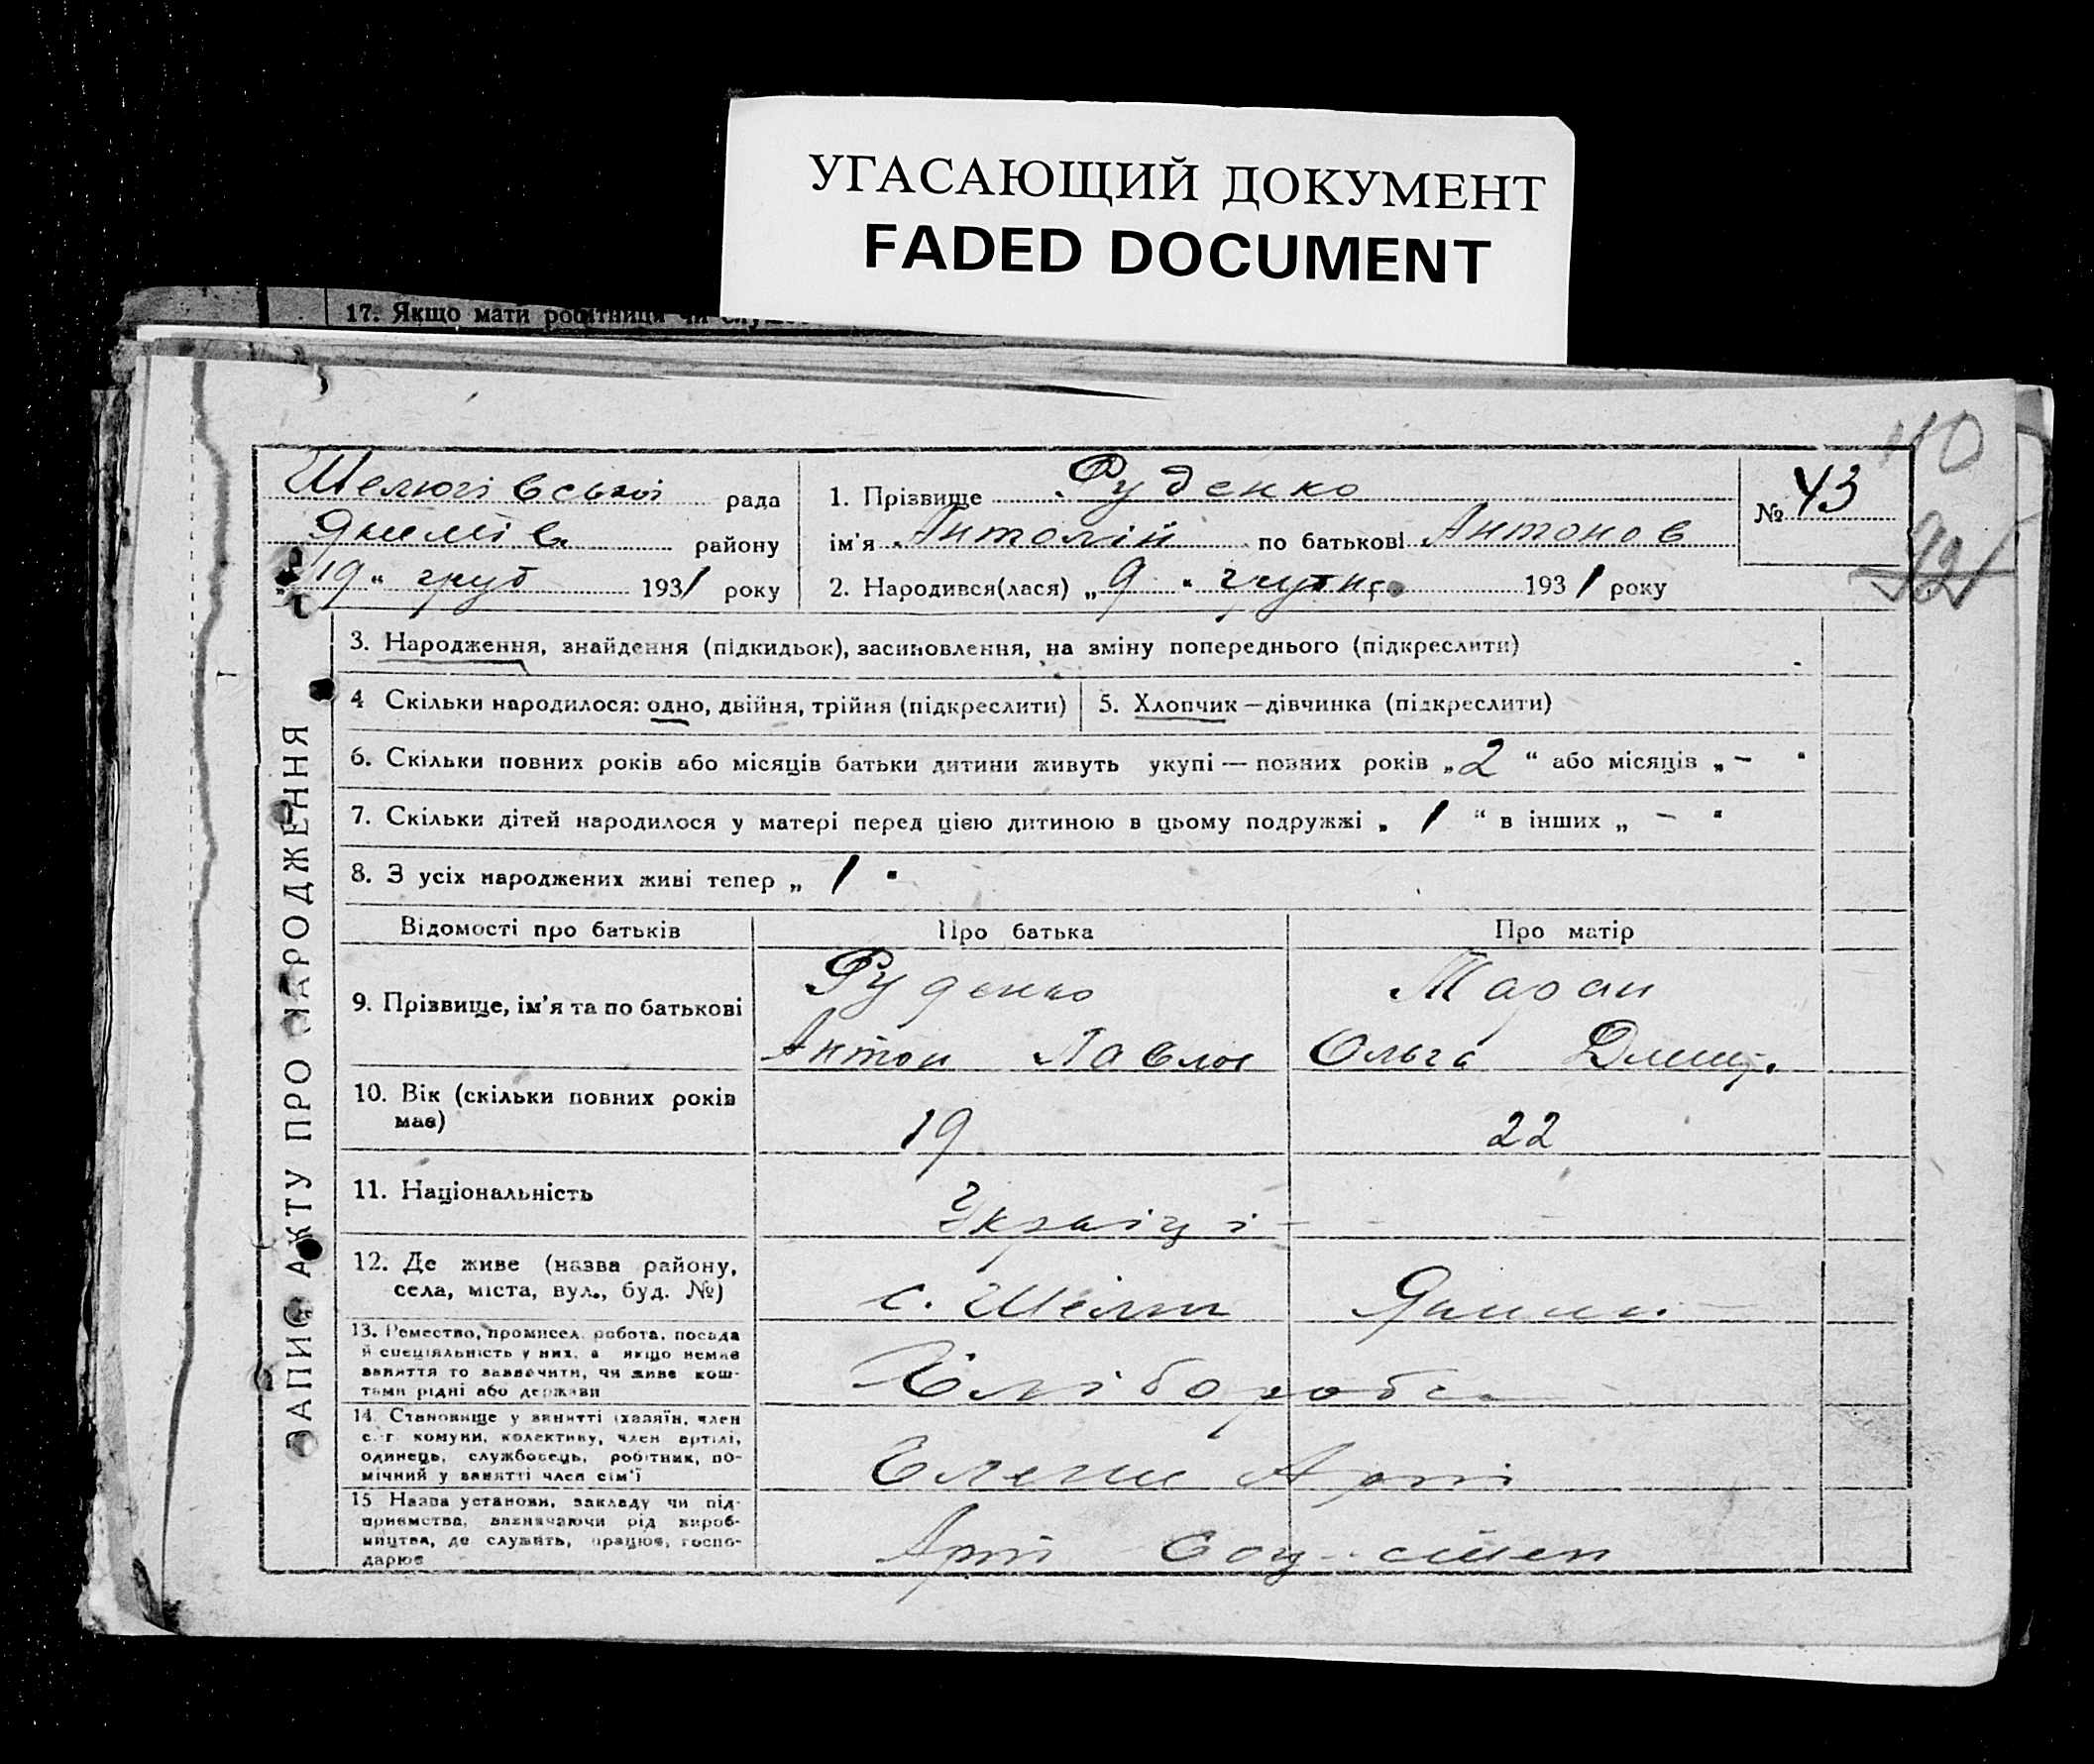 УГАСАЮЩИЙ ДОКУМЕНТ
FADED DOCUMENT
17. Якщо мати робітниця чи служ
110
Шелюгівської рада
Якимів району
„19“ груд 1931 року
1. Прізвище Руденко
ім'я Антолій по батькові Антонов
2. Народився(лася) „9“ грудня 1931 року
№ 43
ЗАПИС АКТУ ПРО НАРОДЖЕННЯ
3. Народження, знайдення (підкидьок), засиновлення, на зміну попереднього (підкреслити)
4 Скільки народилося: одно, двійня, трійня (підкреслити)
5. Хлопчик — дівчинка (підкреслити)
6. Скільки повних років або місяців батьки дитини живуть укупі — повних років „2“ або місяців „-“
7. Скільки дітей народилося у матері перед цією дитиною в цьому подружжі „1“ в інших „-“
8. З усіх народжених живі тепер „1“
Відомості про батьків Про батька Про матір
9. Прізвище, ім'я та по батькові
Руденко
Антон Павлов
Ольга
10. Вік (скільки повних років має)
19 22
11. Національність
Україці
12. Де живе (назва району,
села, міста, вул., буд. №)
с. Шелюг Якими
13. Ремество, промисел, робота, посада
й спеціяльність у них, а якщо немає
заняття то зазначити, чи живе кош-
тами рідні або держави
Хлібороби
14. Становище у занятті (хазяїн, член
с.-г. комуни, колективу, член артілі,
одинець, службовець, робітник, по-
мічний у занятті член сім'ї
Члени Арті
15 Назва установи, закладу чи під-
приємства, зазначаючи рід вироб-
ництва, де служить, працює, госпо-
дарює
Арт Соц. степ